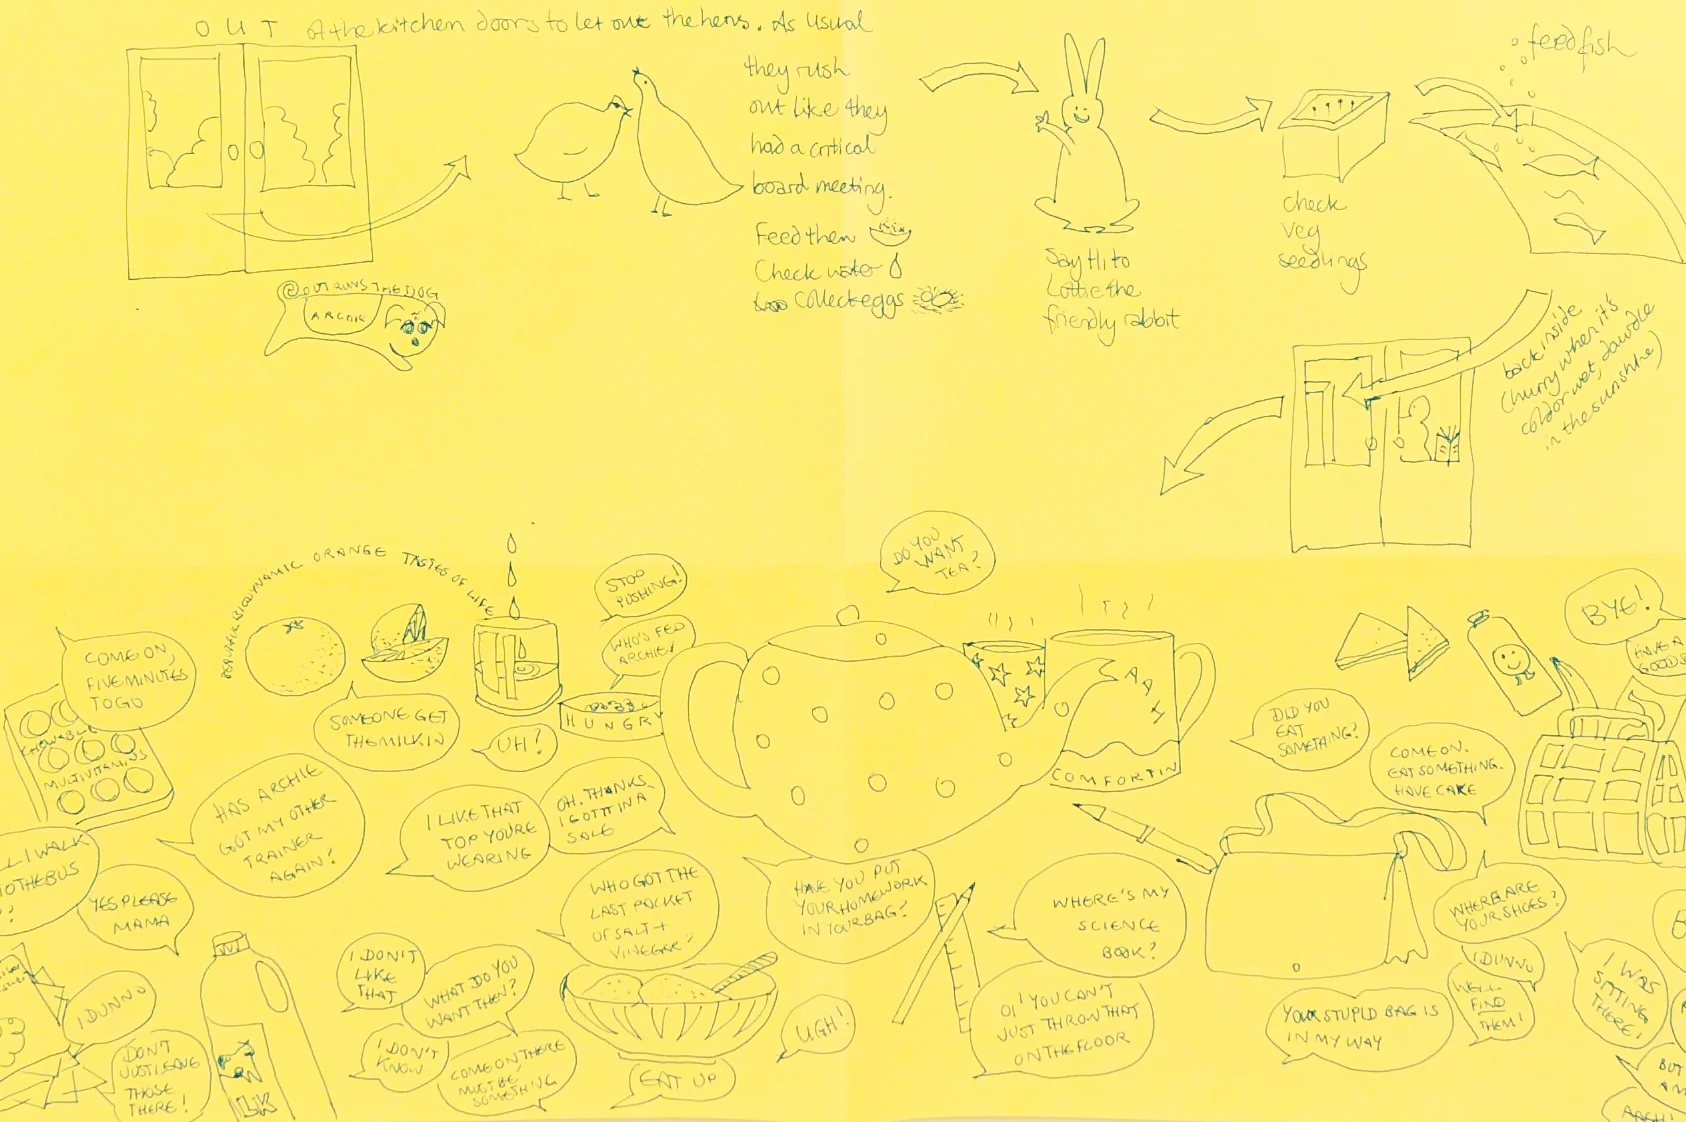 OUT of the kitchen doors to let out the hens. As usual
they rush
out like they
had a critical
board meeting.
Feed them
Check water
Collect eggs
Say Hi to
Lottie the
friendly rabbit
check
veg
seedlings
feed fish
back inside
(hurry when it's
cold or wet, dawdle
in the sunshine)
@OUTRUNSTHEDOG
ARCHIE
BIODYNAMIC ORANGE TASTES OF LIFE
STOP
PUSHING!
WHO'S FED
ARCHIE?
HUNGRY
DO YOU
WANT
TEA?
AAH
COMFORTIN
COME ON,
FIVE MINUTES
TO GO
CHEWABLE
MULTIVITAMINS
SOMEONE GET
THE MILK IN
UH?
HAS ARCHIE
GOT MY OTHER
TRAINER
AGAIN?
I LIKE THAT
TOP YOU'RE
WEARING
OH. THANKS.
I GOT IT IN A
SALE
I WALK
TO THE BUS
?
YES PLEASE
MAMA
I DUNNO
DON'T
JUST LEAVE
THOSE
THERE!
LK
I DON'T
LIKE
THAT
WHAT DO YOU
WANT THEN?
I DON'T
KNOW
COME ON THERE
MUST BE
SOMETHING
WHO GOT THE
LAST PACKET
OF SALT +
VINEGAR?
EAT UP
UGH!
HAVE YOU PUT
YOUR HOMEWORK
IN YOUR BAG?
WHERE'S MY
SCIENCE
BOOK?
OI! YOU CAN'T
JUST THROW THAT
ON THE FLOOR
DID YOU
EAT
SOMETHING?
COME ON.
EAT SOMETHING.
HAVE CAKE
BYE!
HAVE A
GOOD
WHERE ARE
YOUR SHOES?
I DUNNO
WELL
FIND
THEM!
YOUR STUPID BAG IS
IN MY WAY
I WAS
SITTING
THERE!
BUT